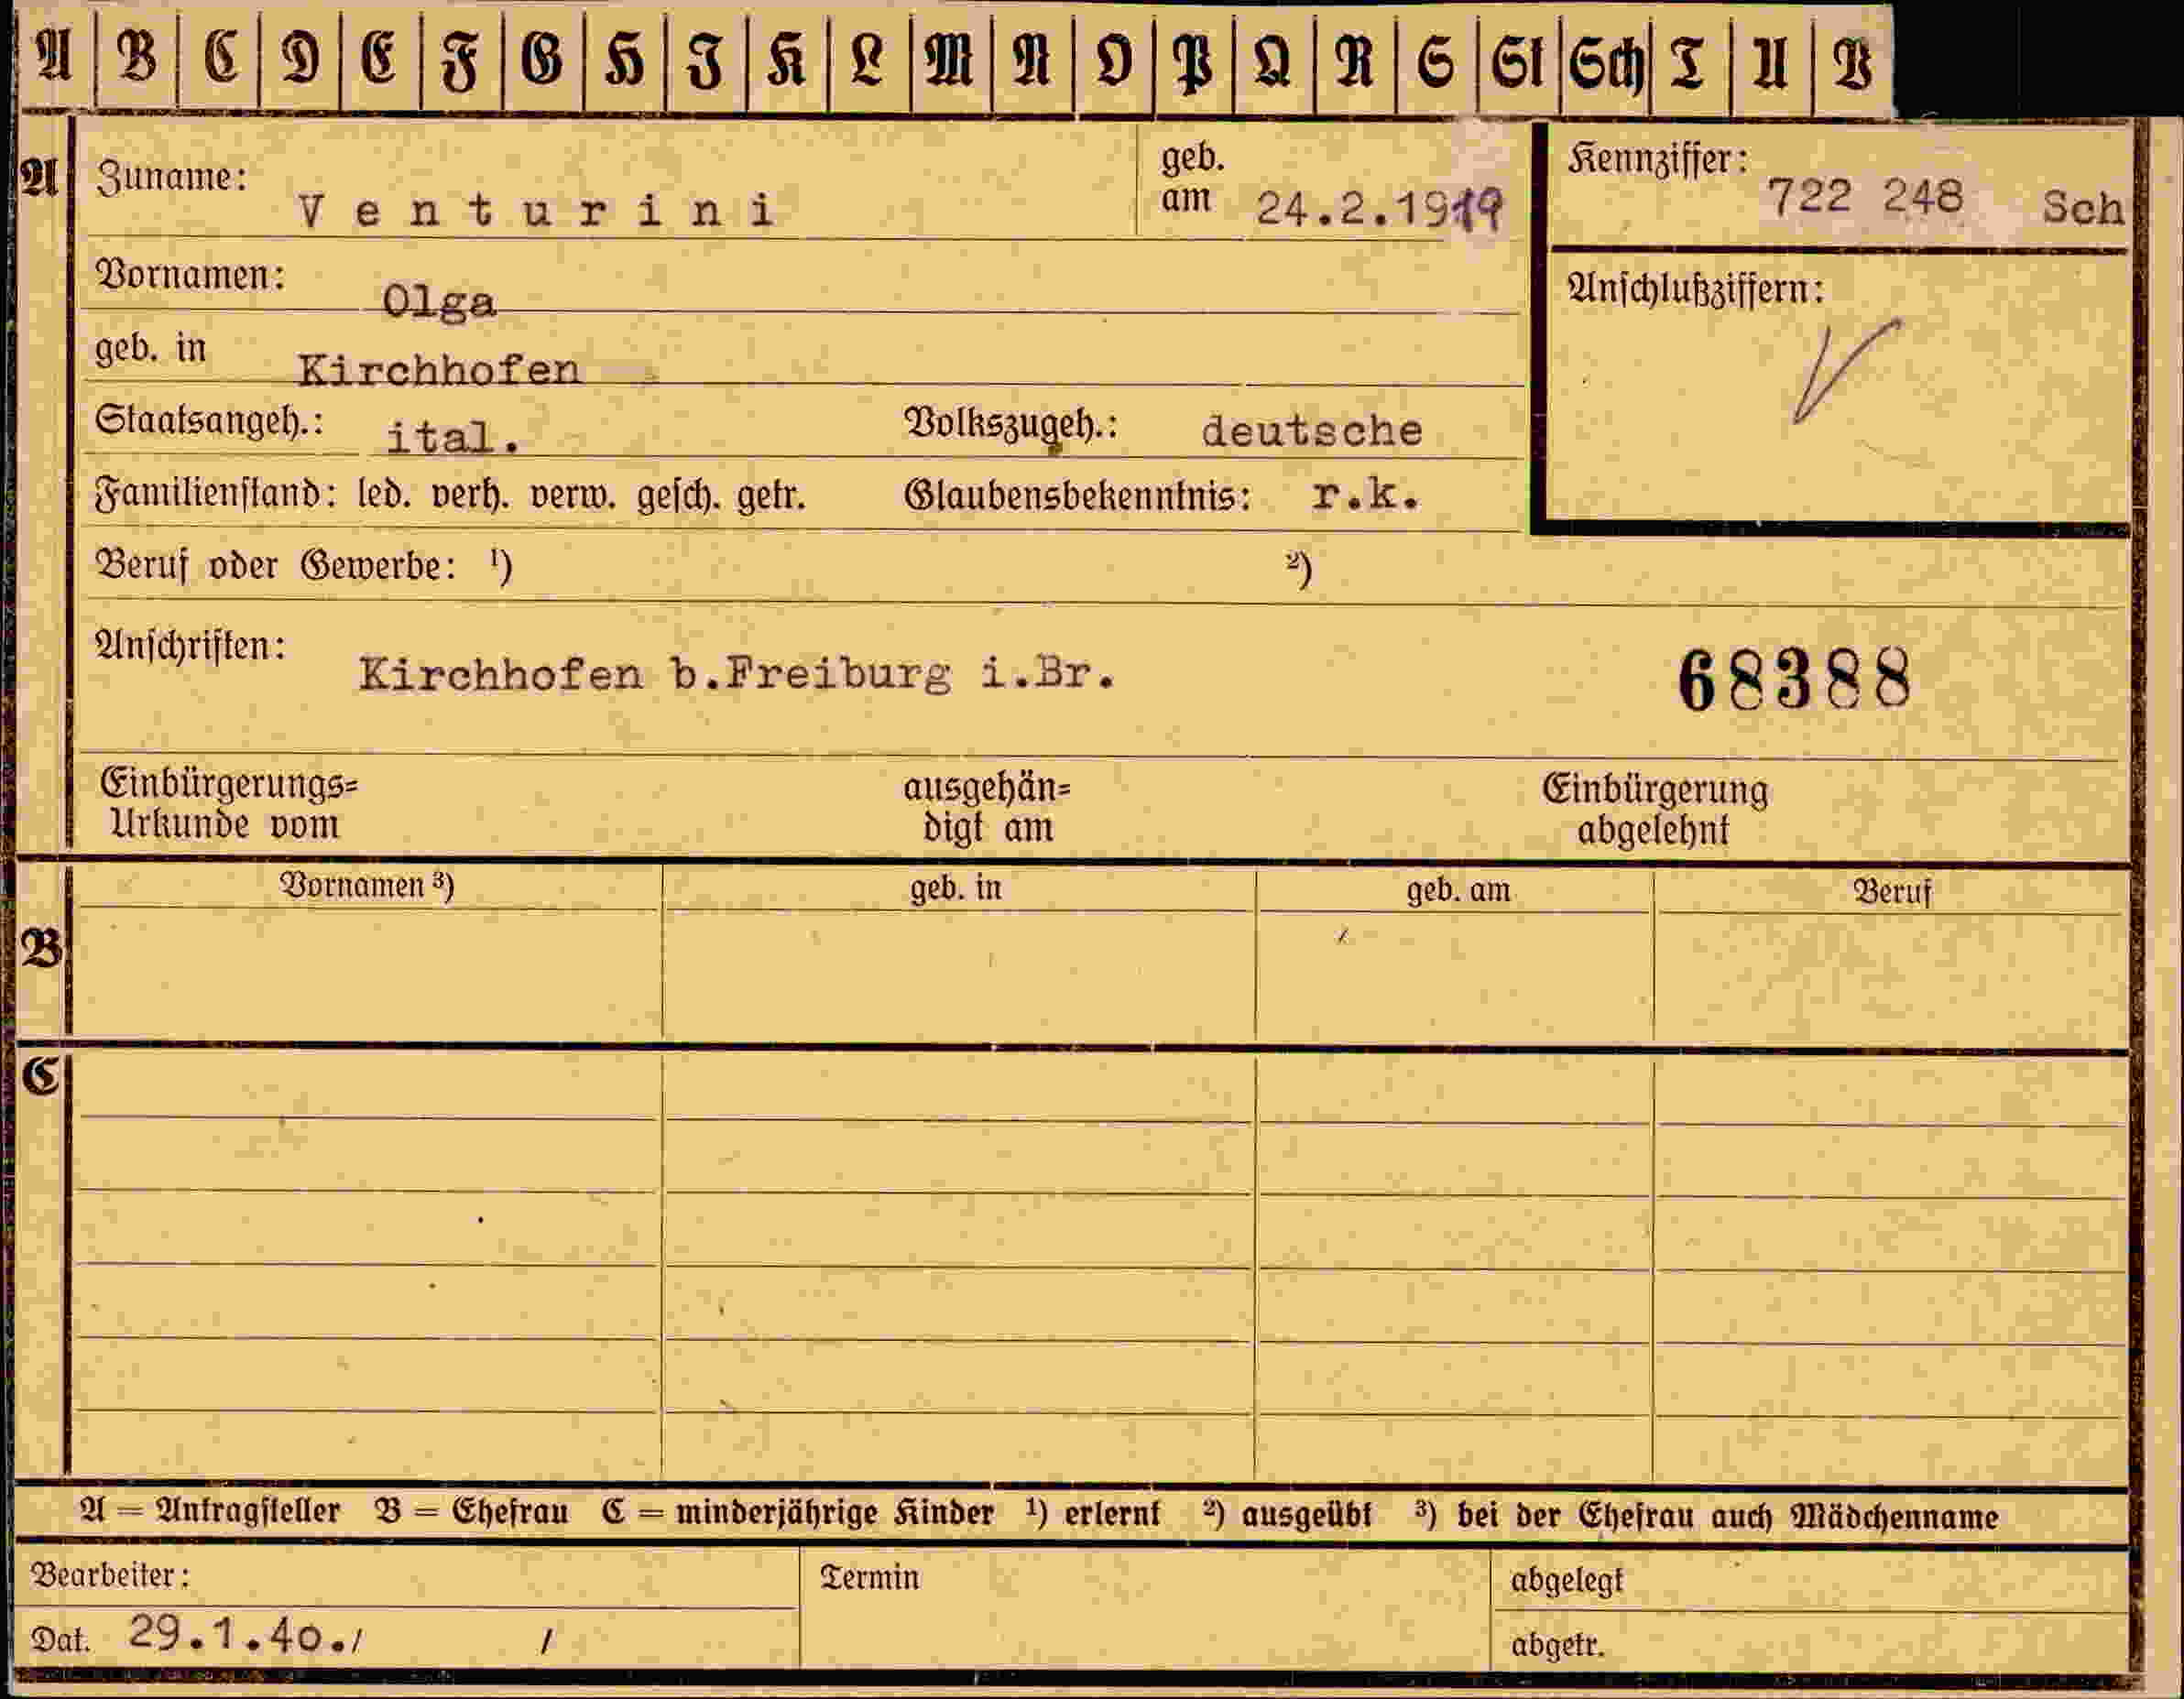 A B C D E F G H I K L M N O P Q R S St Sch T U V
A Zuname: Venturini geb. am 24.2.1919 Kennziffer: 722 248 Sch
Vornamen: Olga Anschlußziffern:
geb. in Kirchhofen
Staatsangeh.: ital. Volkszugeh.: deutsche
Familienstand: led. verh. verw. gesch. getr. Glaubensbekenntnis: r.k.
Beruf oder Gewerbe: 1) 2)
Anschriften: Kirchhofen b.Freiburg i.Br. 68388
Einbürgerungs= ausgehän= Einbürgerung
Urkunde vom digt am abgelehnt
Vornamen 3) geb. in geb. am Beruf
B
C
A = Antragsteller B = Ehefrau C = minderjährige Kinder 1) erlernt 2) ausgeübt 3) bei der Ehefrau auch Mädchenname
Bearbeiter: Termin abgelegt
Dat. 29.1.40./ / abgetr.